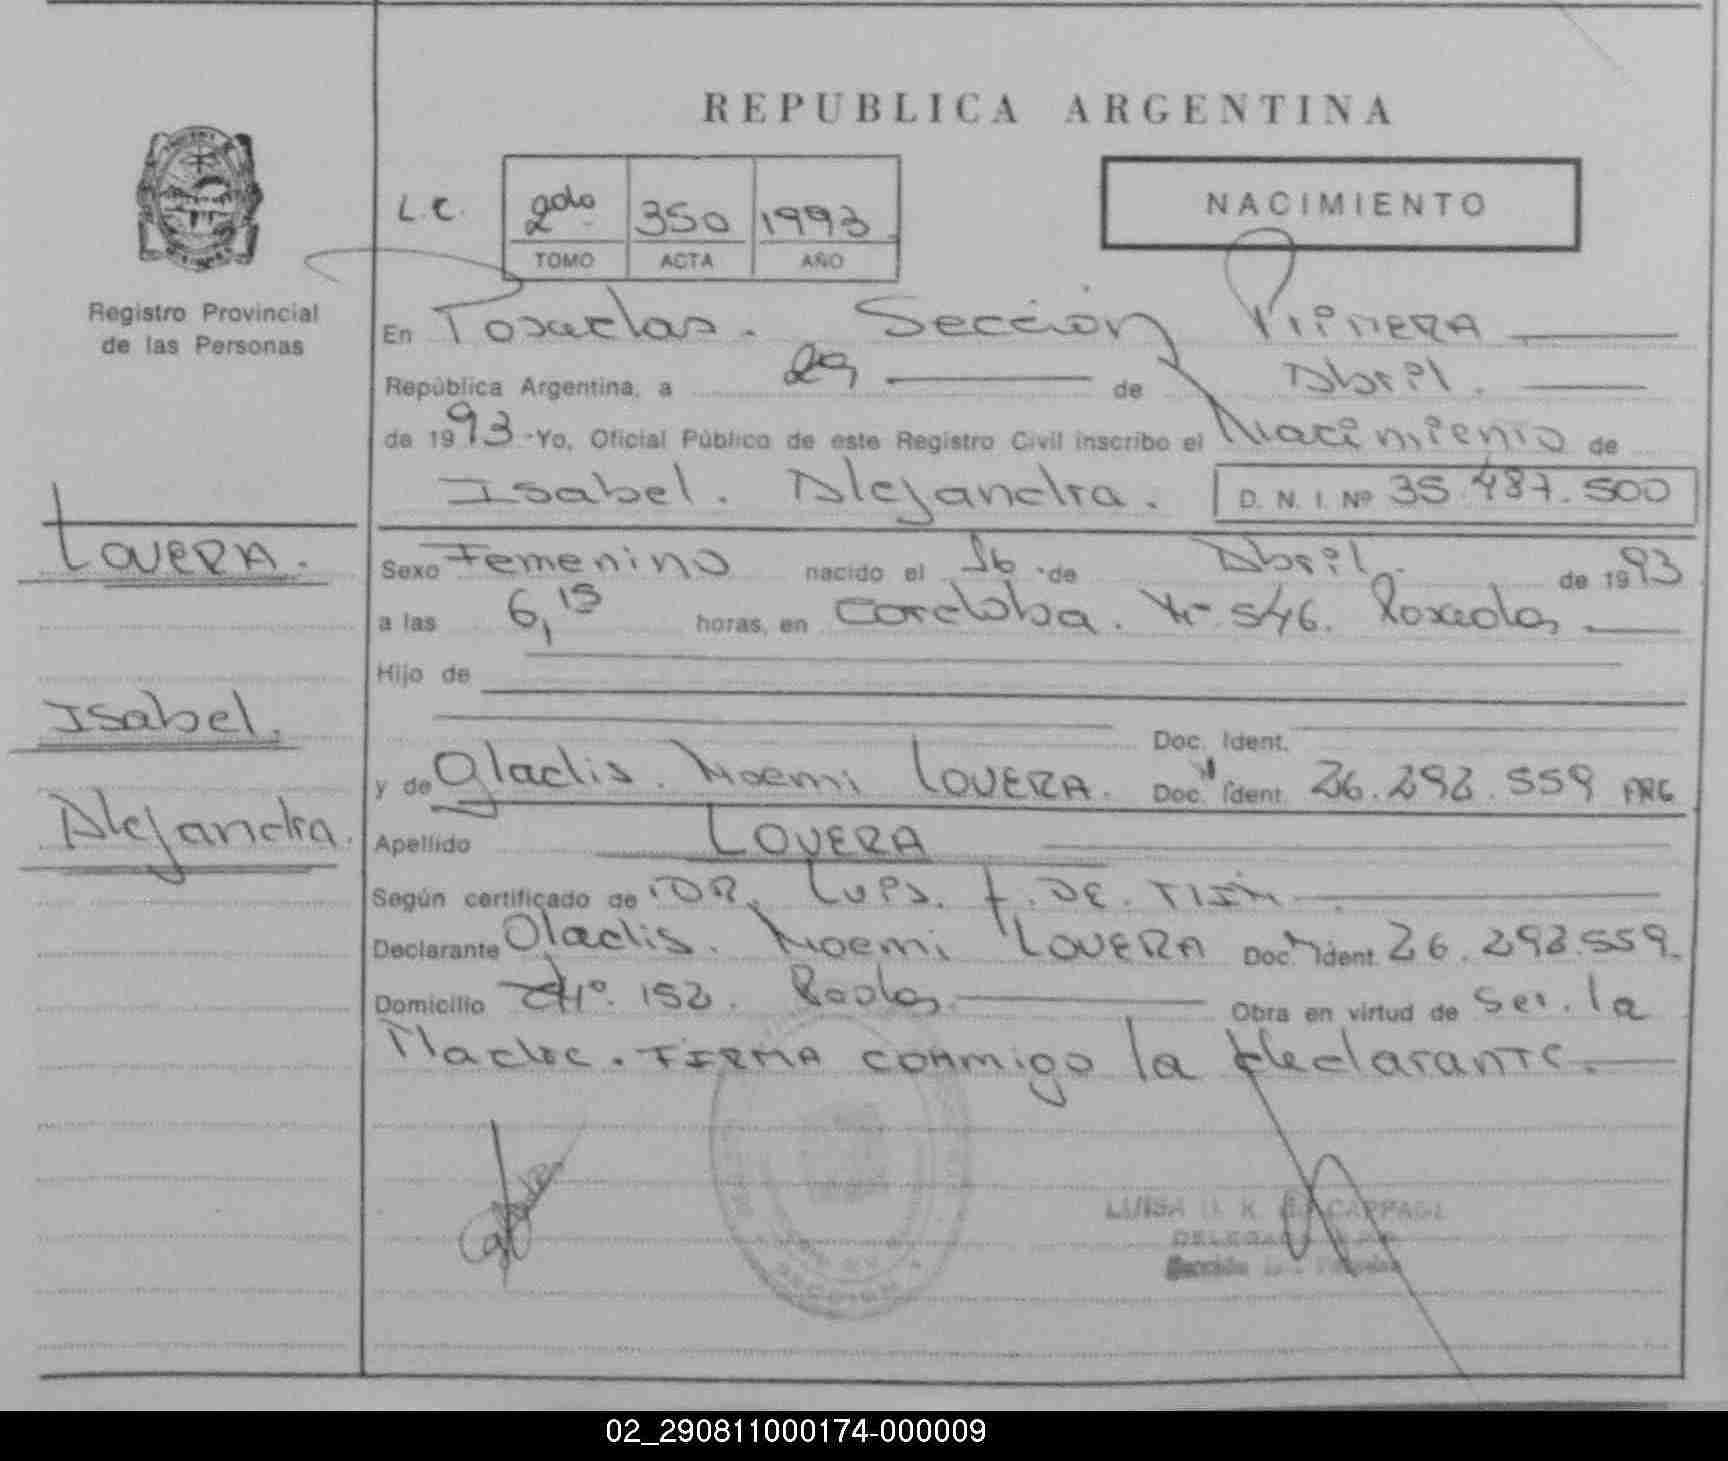 REPUBLICA ARGENTINA
L.C.
2do 350 1993
TOMO ACTA AÑO
NACIMIENTO
Registro Provincial
de las Personas
En Posadas. Sección Primera
República Argentina, a 29 de Abril.
de 1993 -Yo, Oficial Público de este Registro Civil inscribo el Nacimiento de
Isabel. Alejandra. D. N. I. Nº 35.487.500
LOVERA.
Isabel.
Alejandra.
Sexo Femenino nacido el 16 de Abril. de 1993
a las 6,15 horas, en Cordoba. Nº 546. Posadas
Hijo de
Doc. Ident.
y de Gladis. Noemi LOVERA. Doc. Ident. 26.292.559 ARG
Apellido LOVERA
Según certificado de DR. Luis. DE.
Declarante Gladis. Noemi LOVERA Doc. Ident. 26.292.559.
Domicilio Nº. 152. Obra en virtud de Ser. la
Madre. FIRMA conmigo la declarante.
LUISA K. CAPPAGL
02_290811000174-000009